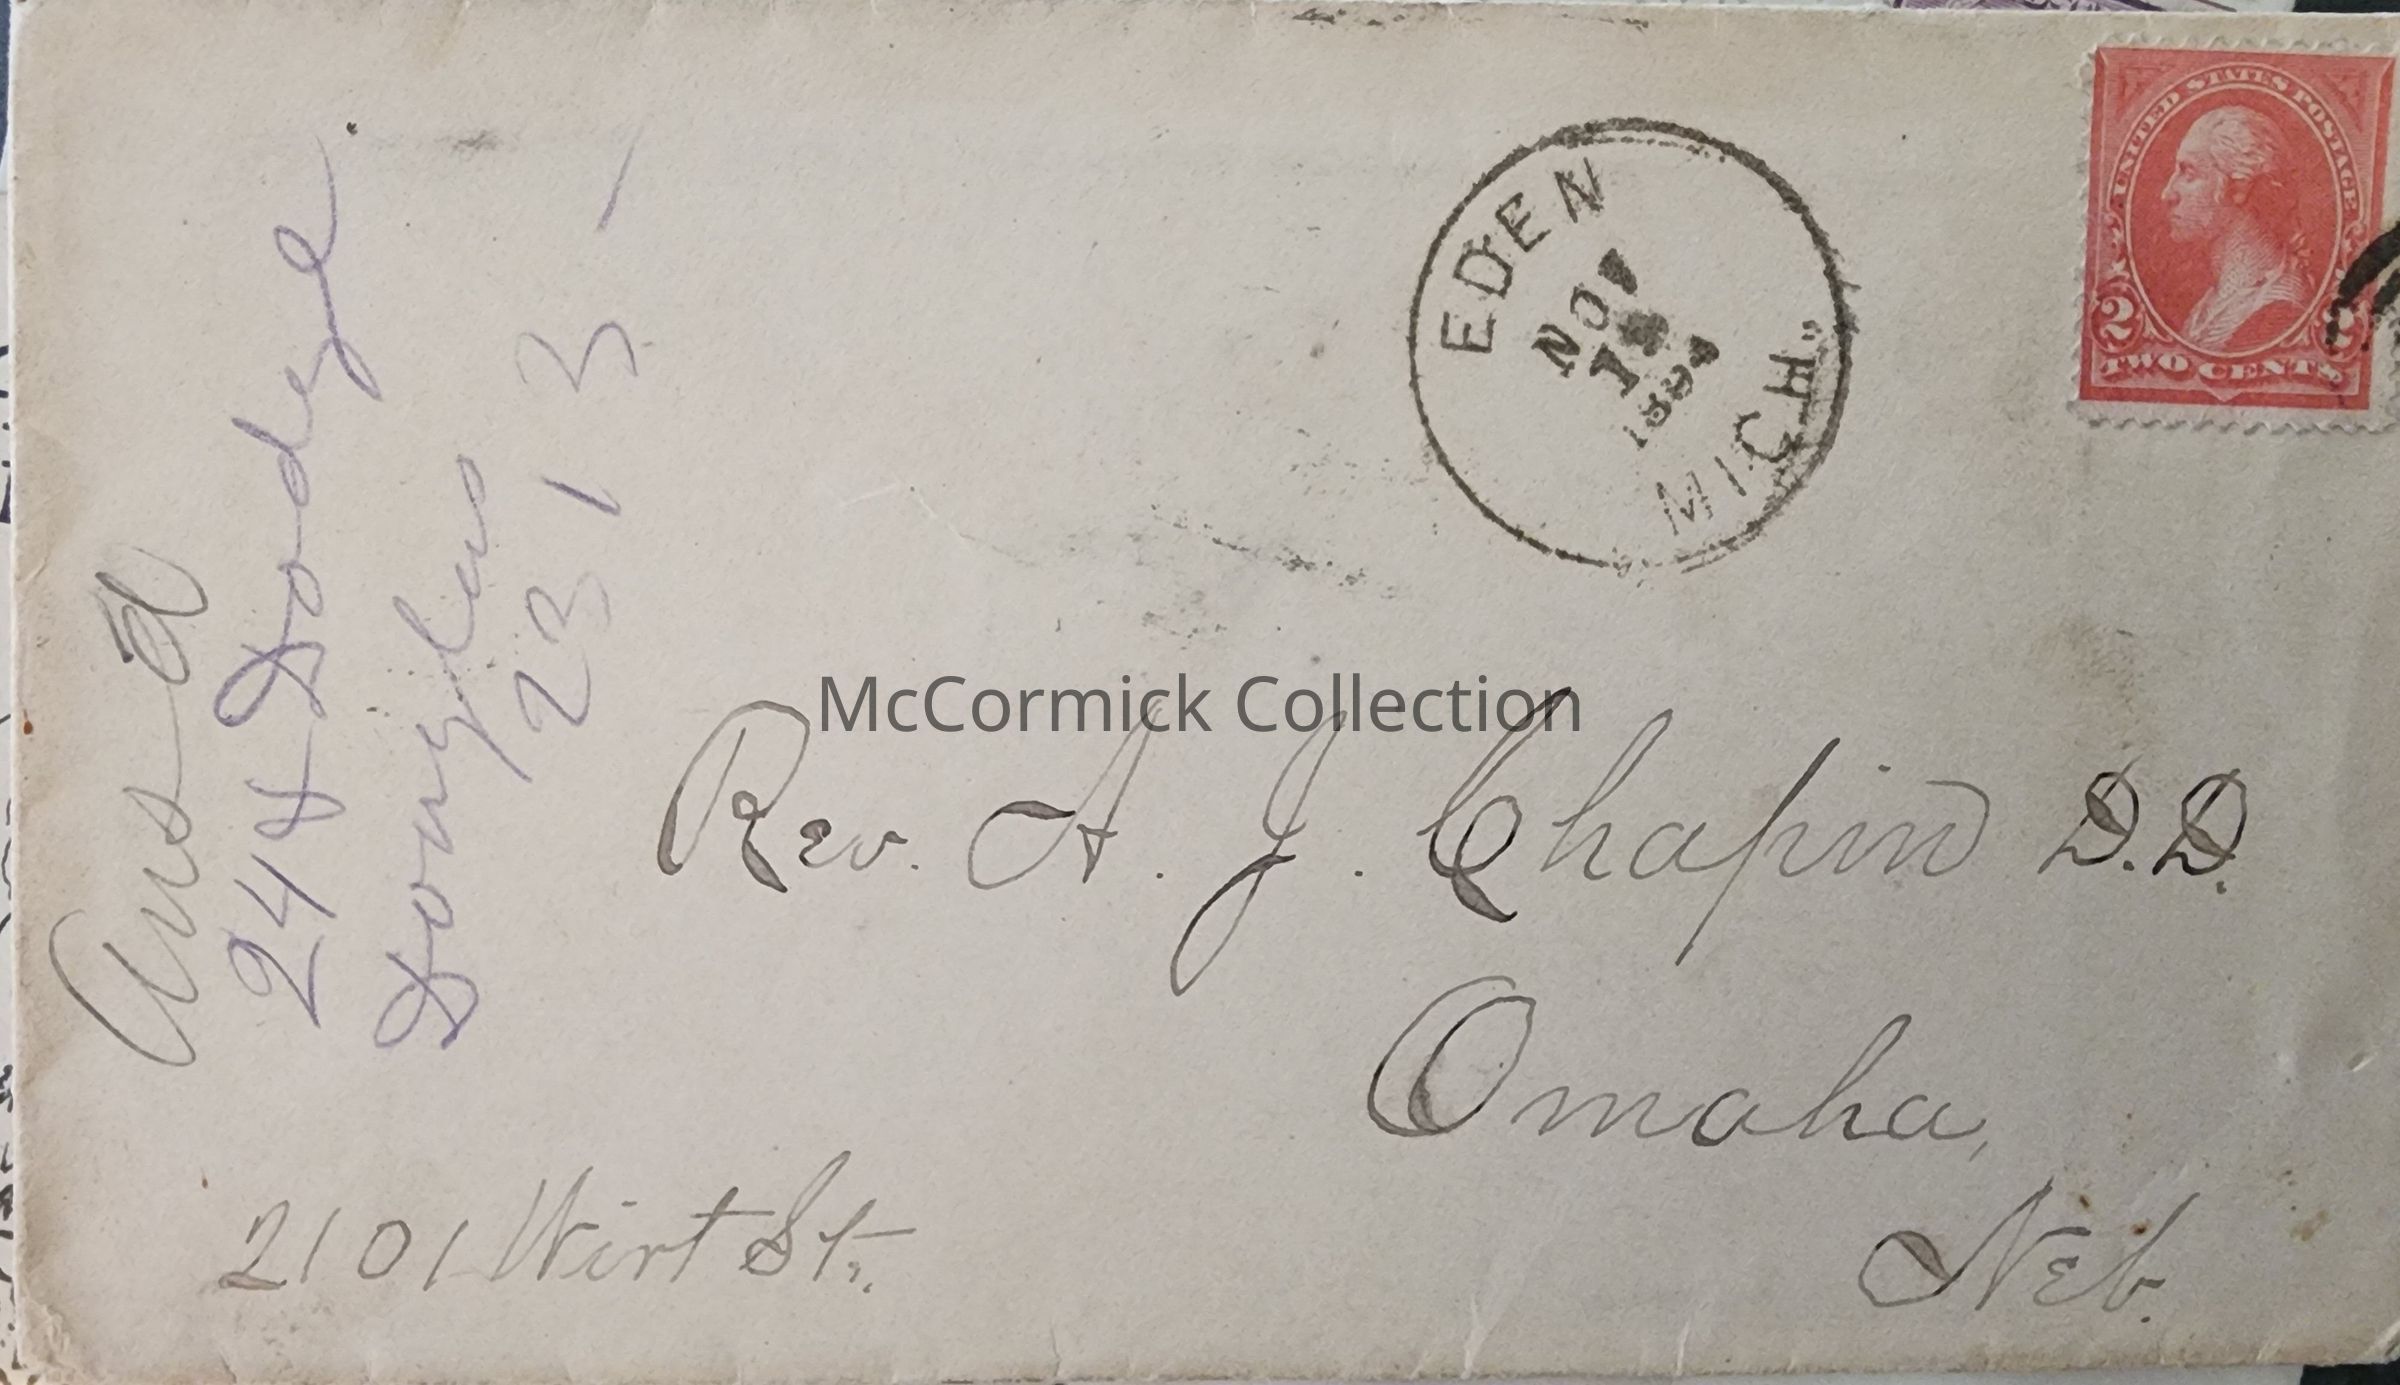 UNITED STATES POSTAGE
2 2
TWO CENTS
EDEN
NOV
14
1894
MICH.
McCormick Collection
Rev. A. J. Chapin D.D.
Omaha,
Neb.
2101 Wirt St.
Ans d
24 & Dodge
Douglas
23 13